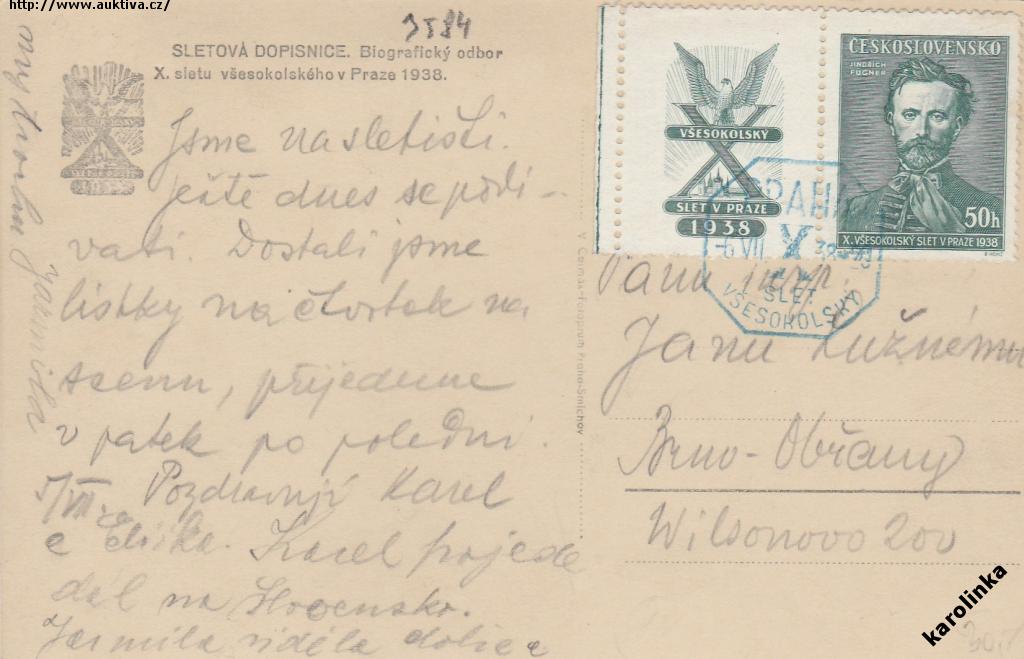 http://www.auktiva.cz/
3584
SLETOVÁ DOPISNICE. Biografický odbor
X. sletu všesokolského v Praze 1938.
Jsme na sletišti.
Ještě dnes se podí-
vati. Dostali jsme
lístky na čtvrtek na
scenu, přijedeme
v patek po poledni.
5/VII
Pozdravují Karel
a Eliška. Karel pojede
dál na Slovensko.
Jarmila viděla
Jarmila
V. Čermák-Fotoprum Praha-Smíchov
VŠESOKOLSKÝ
X
SLET V PRAZE
1938
ČESKOSLOVENSKO
JINDŘICH
FÜGNER
50h
X. VŠESOKOLSKÝ SLET V PRAZE 1938
PRAHA
-6 VII
X
SLET
VŠESOKOLSKÝ
Panu
Janu Lužnému
Brno-Obřany
Wilsonovo 200
karolinka